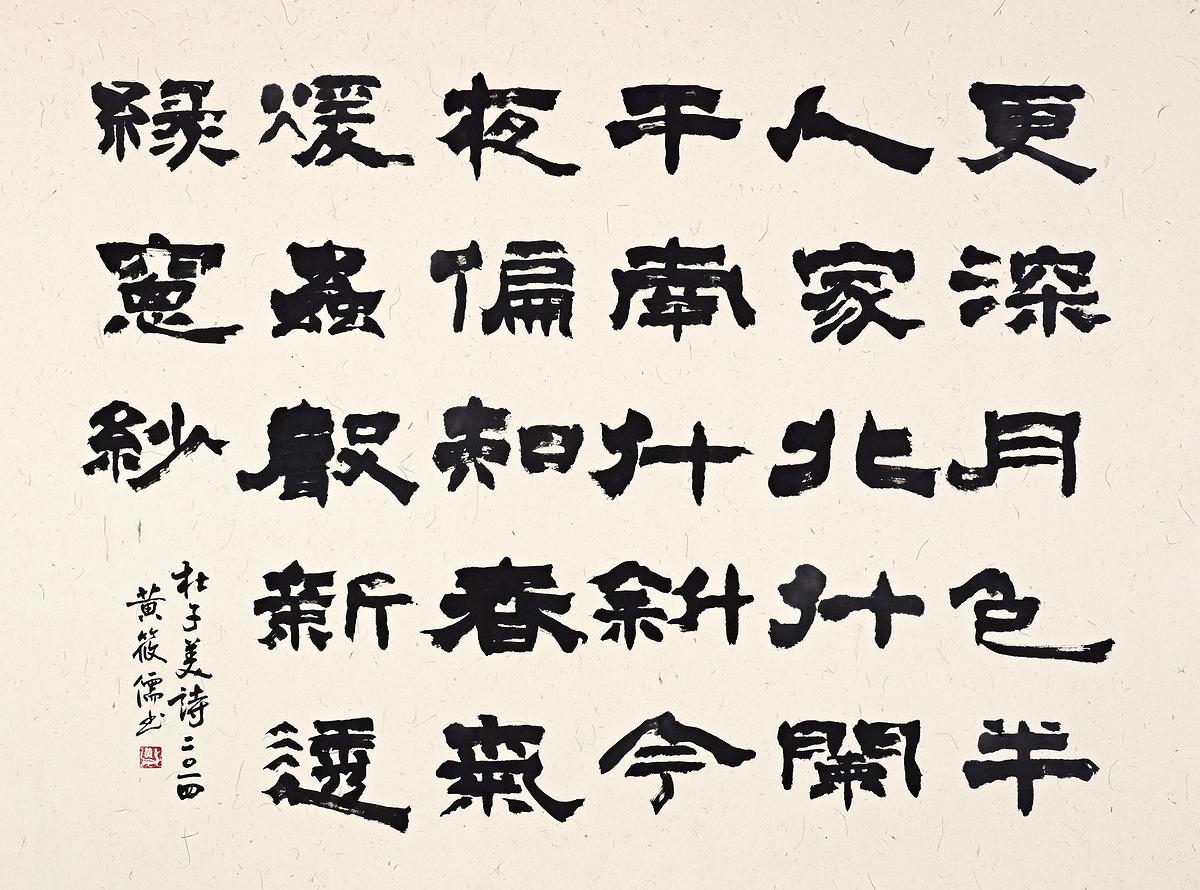 更深月色半
人家北斗闌
干南斗斜今
夜偏知春氣
煖蟲聲新透
綠窻紗
杜子美詩二〇一四
黄筱儒书